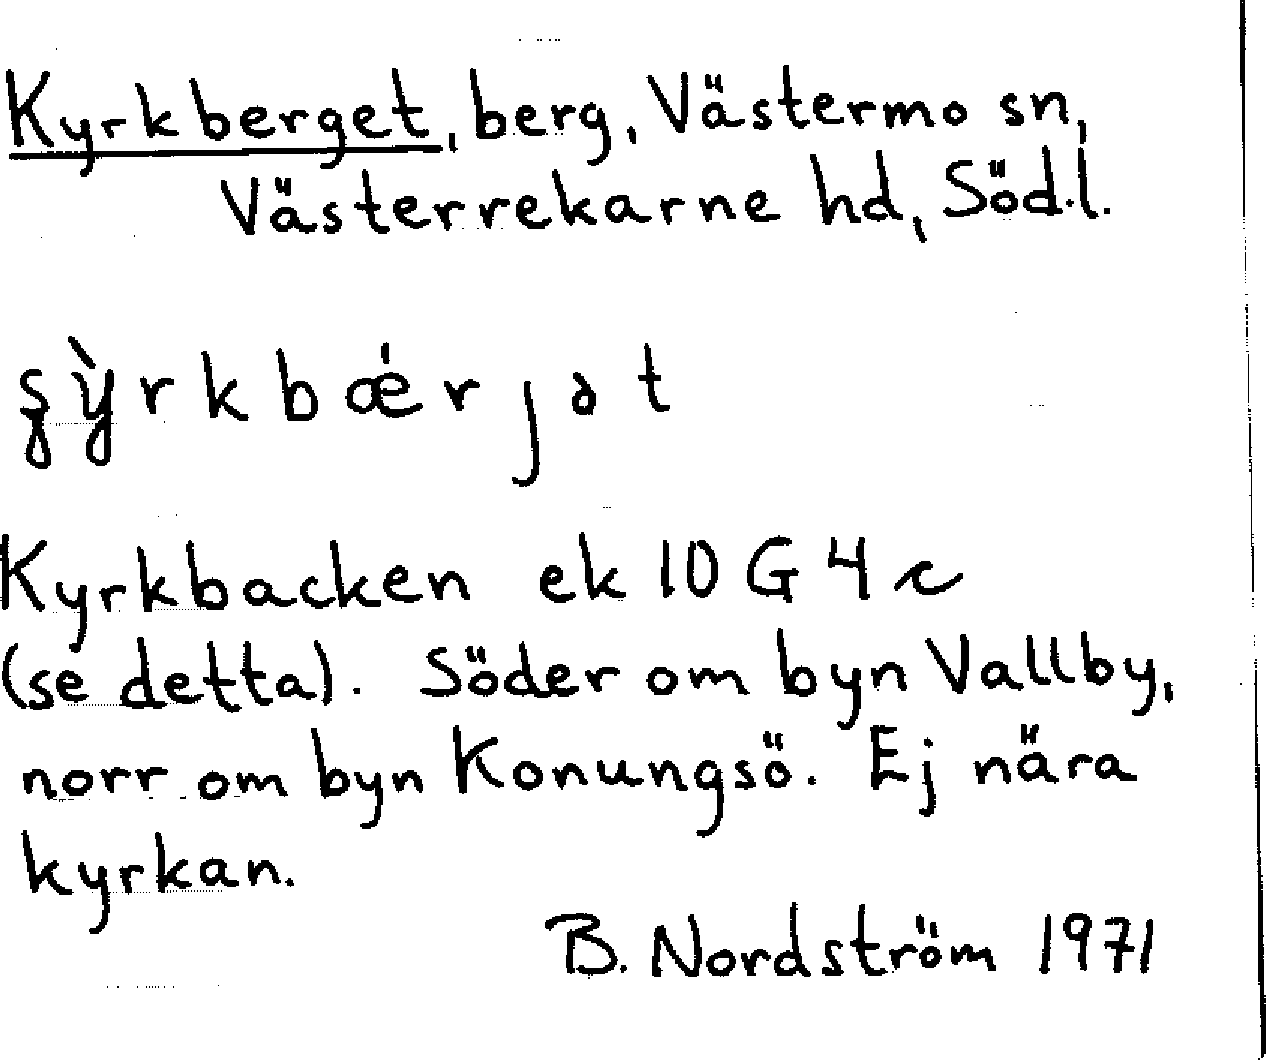 Kyrkberget, berg, Västermo sn,
Västerrekarne hd, Söd.l.
Kyrkbacken ek 10 G 4 c
(se detta). Söder om byn Vallby,
norr om byn Konungsö. Ej nära
kyrkan.
B. Nordström 1971